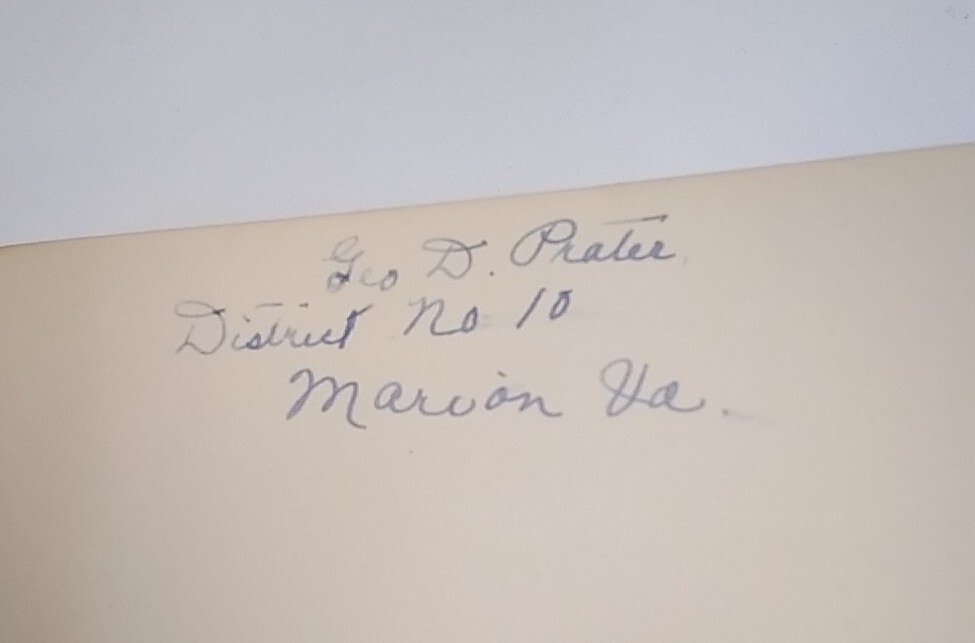 Geo D. Prater
District No 10
Marion Va.